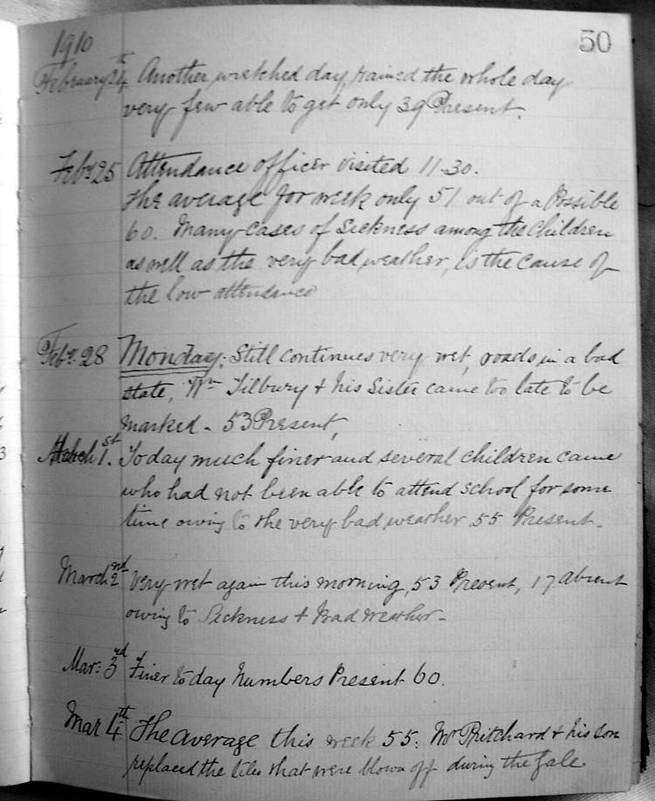 1910
50
February 24th Another wretched day, rained the whole day
very few able to get only 39 Present.
Feby 25 Attendance officer visited 11-30.
The average for week only 51 out of a Possible
60. Many cases of Sickness among the Children
as well as the very bad weather, is the cause of
the low attendance
Feby. 28 Monday. Still continues very wet, roads in a bad
state, Wm Tilbury & his Sister came too late to be
marked - 53 Present,
March 1st. Today much finer and several children came
who had not been able to attend school for some
time owing to the very bad weather 55 Present.
March 2nd Very wet again this morning, 53 Present, 17 absent
owing to Sickness & Bad Weather -
Mar: 3rd Finer today Numbers Present 60.
Mar 4th The average this week 55. Mr Pritchard & his son
replaced the tiles that were blown off during the Gale.